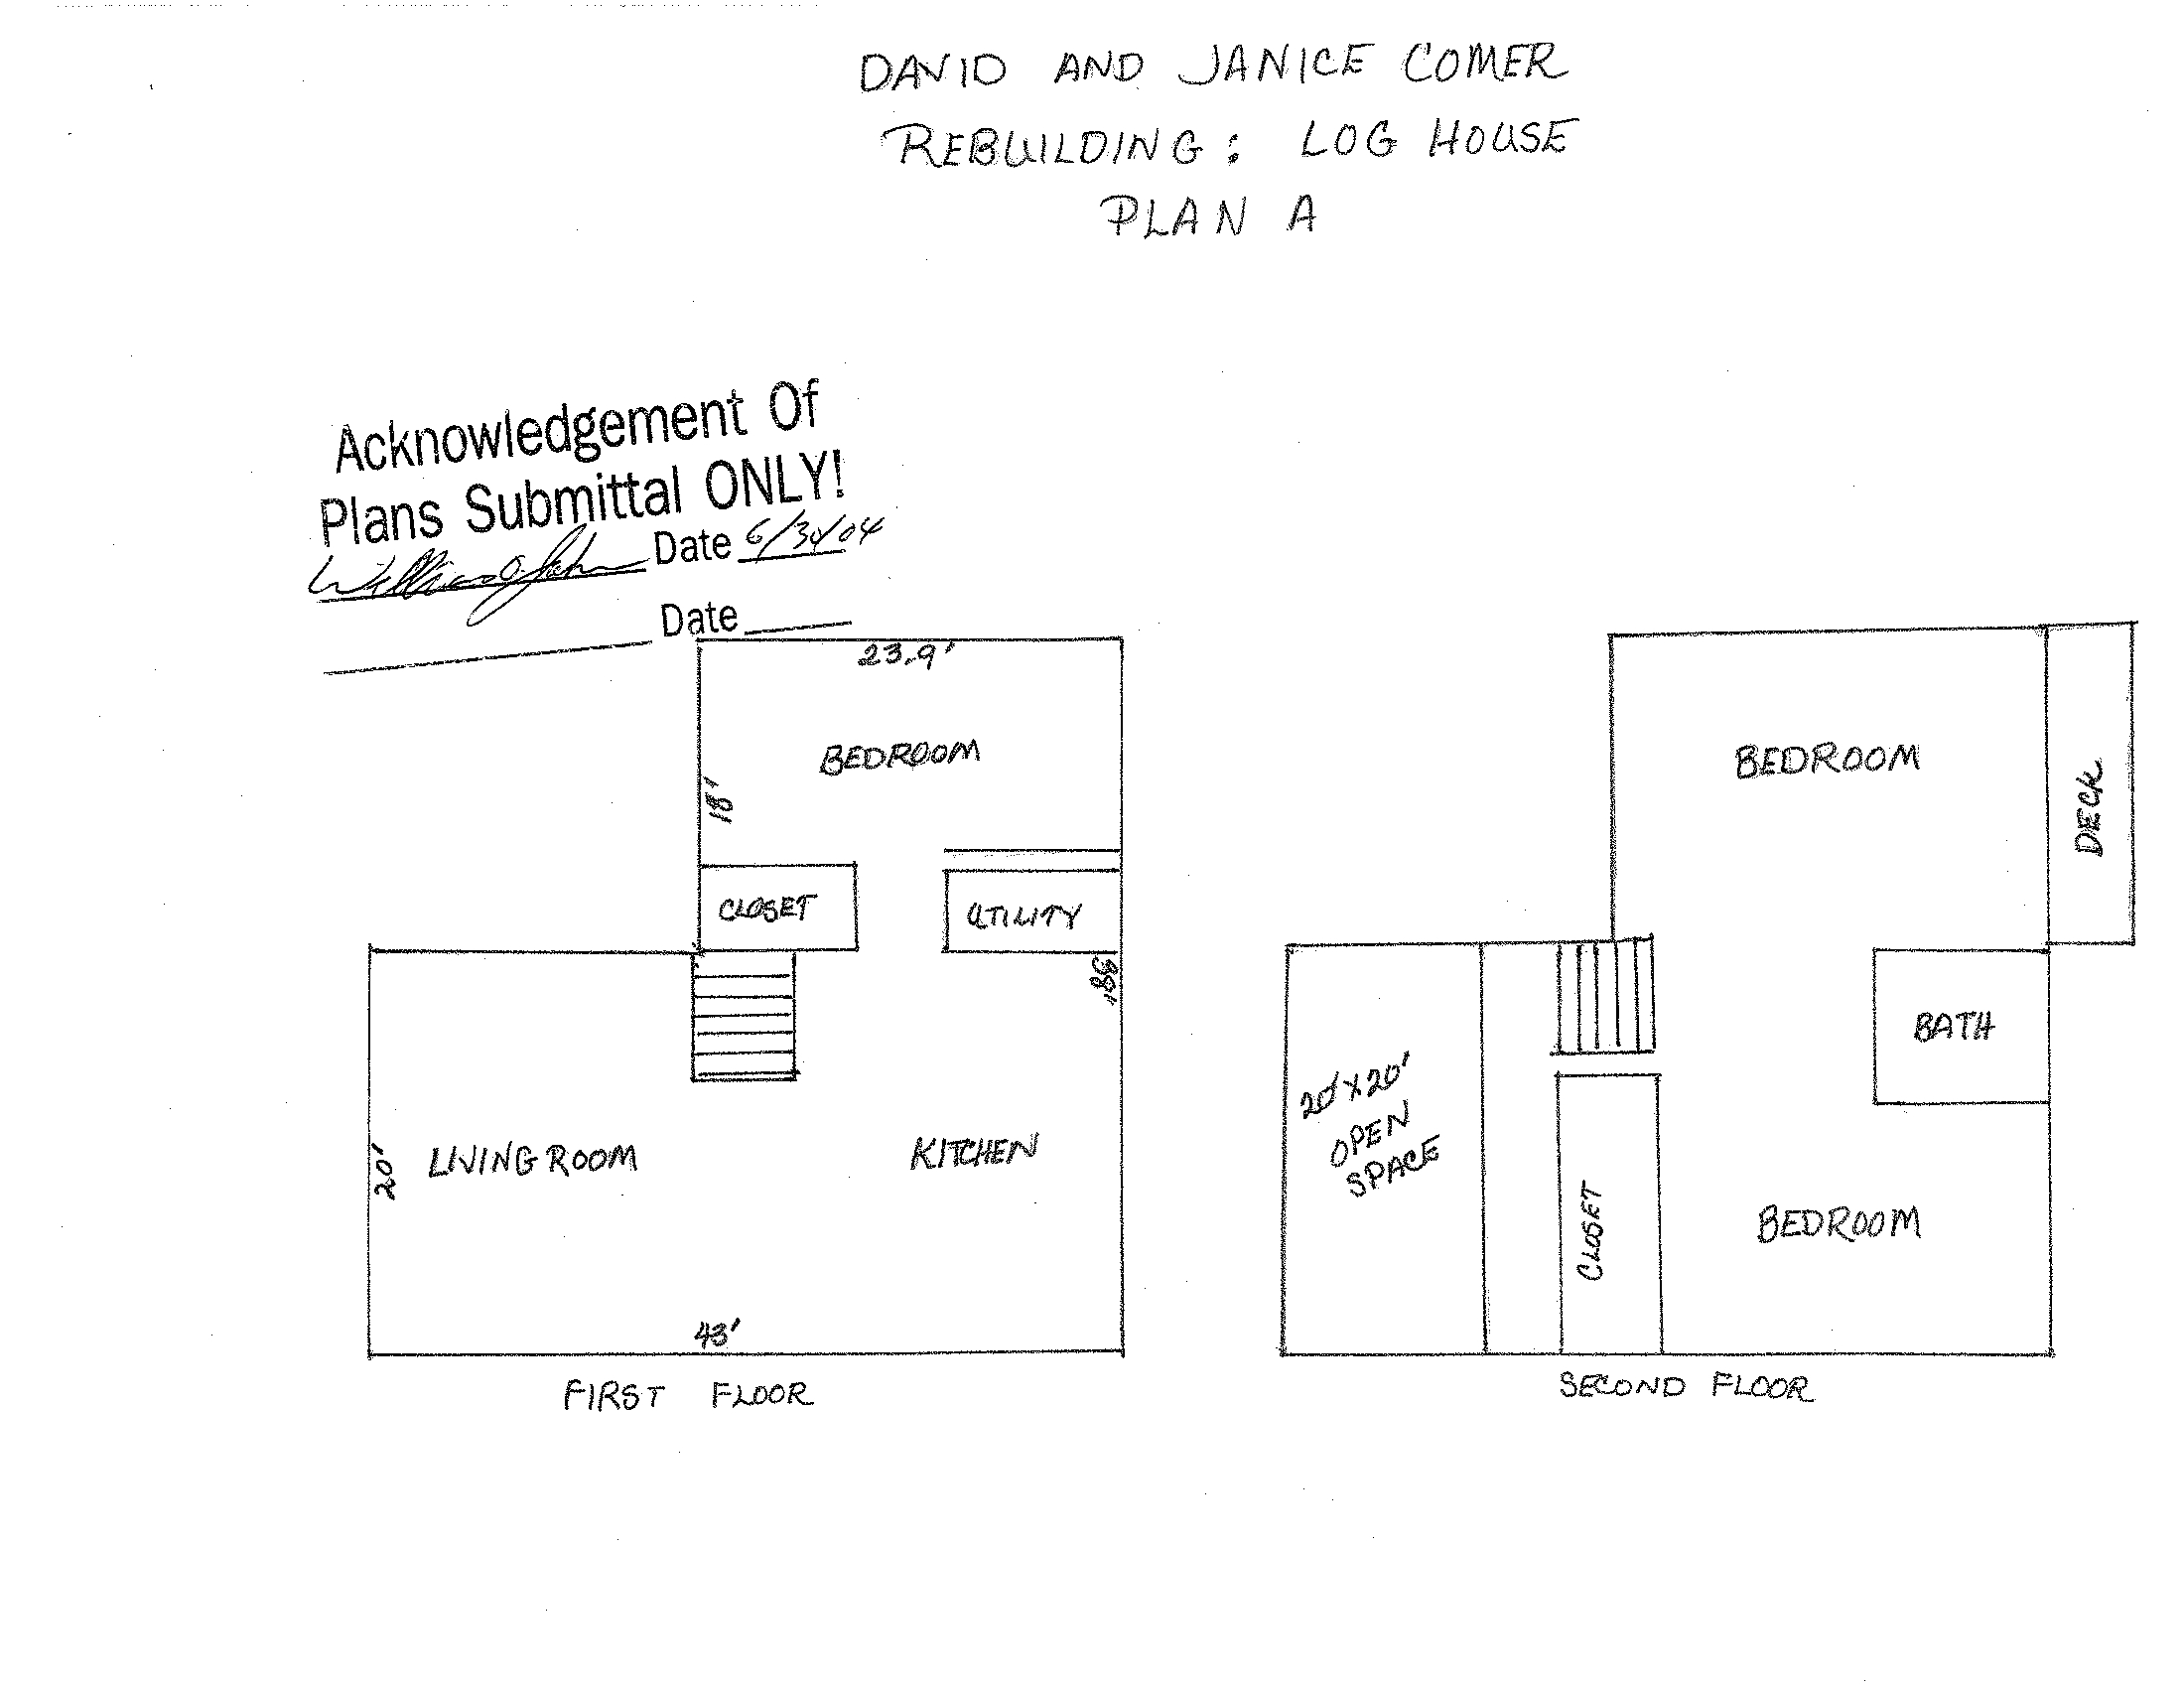 DAVID AND JANICE COMER
REBUILDING: LOG HOUSE
PLAN A
Acknowledgement Of
Plans Submittal ONLY!
Date 6/30/04
Date
23.9'
BEDROOM
18'
CLOSET
UTILITY
38'
LIVING ROOM
KITCHEN
20'
43'
FIRST FLOOR
BEDROOM
DECK
BATH
20' X 20'
OPEN
SPACE
CLOSET
BEDROOM
SECOND FLOOR